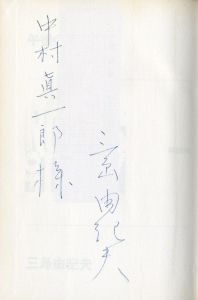 中村真一郎様
三島由紀夫
三島由紀夫